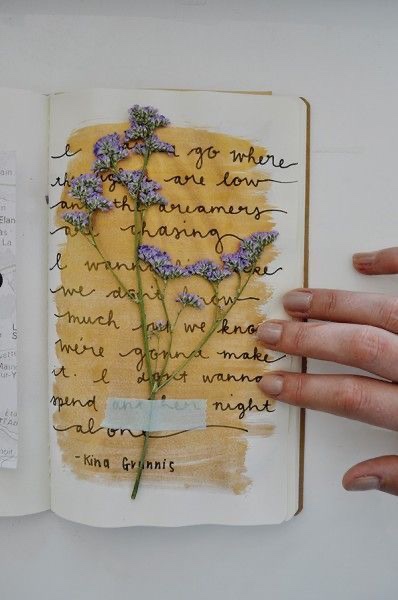 I go where
are low
and the dreamers
chasing
I wanna
we don't know
much but we know
we're gonna make
it. I don't wanna
spend another night
alone
-Kina Grannis